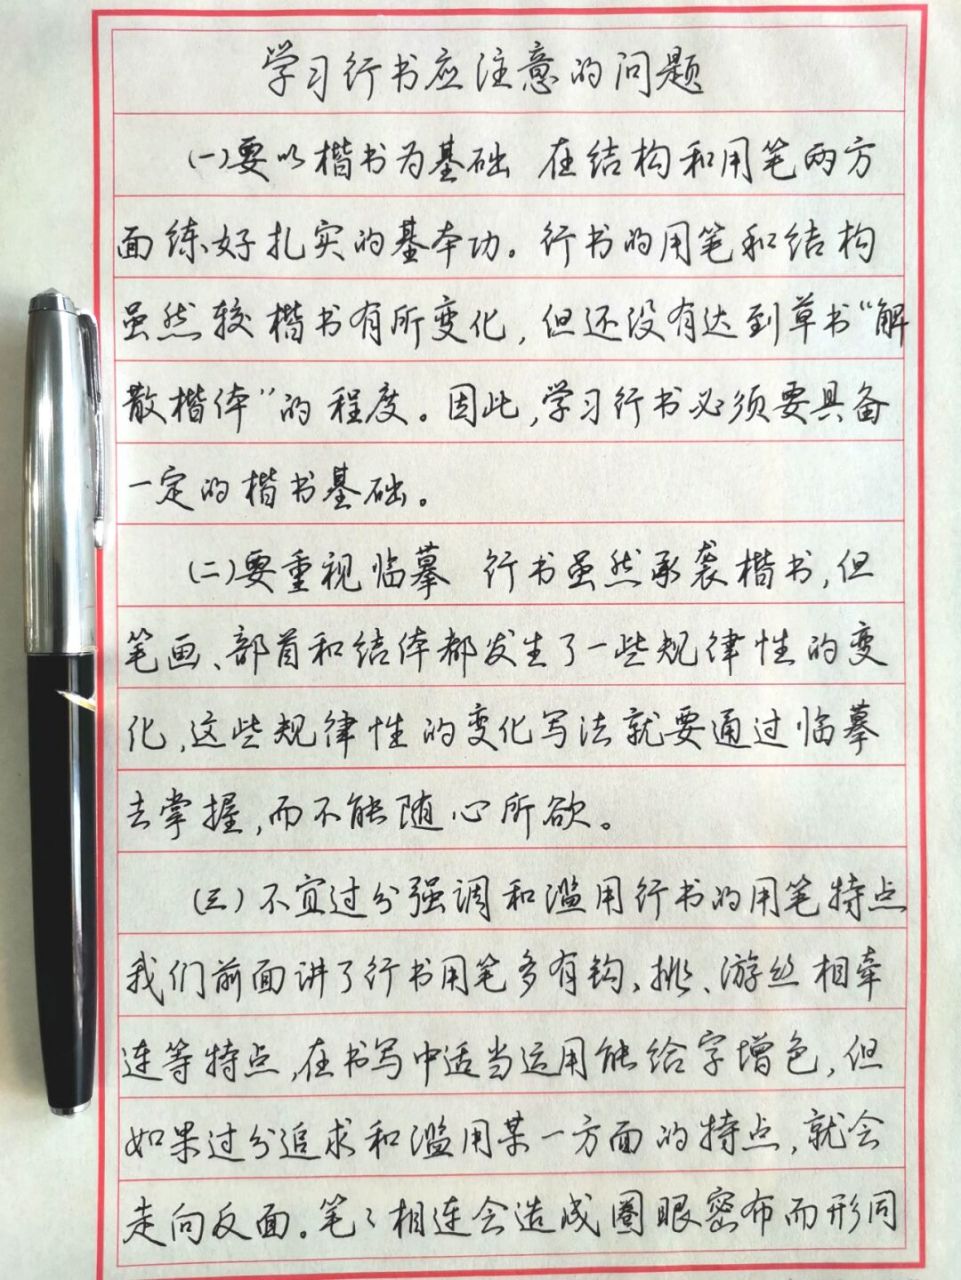 学习行书应注意的问题
(一)要以楷书为基础 在结构和用笔两方
面练好扎实的基本功。行书的用笔和结构
虽然较楷书有所变化,但还没有达到草书“解
散楷体”的程度。因此,学习行书必须要具备
一定的楷书基础。
(二)要重视临摹 行书虽然承袭楷书,但
笔画、部首和结体都发生了一些规律性的变
化,这些规律性的变化写法就要通过临摹
去掌握,而不能随心所欲。
(三)不宜过分强调和滥用行书的用笔特点
我们前面讲了行书用笔多有钩、挑、游丝相牵
连等特点,在书写中适当运用能给字增色,但
如果过分追求和滥用某一方面的特点,就会
走向反面。笔笔相连会造成圈眼密布而形同